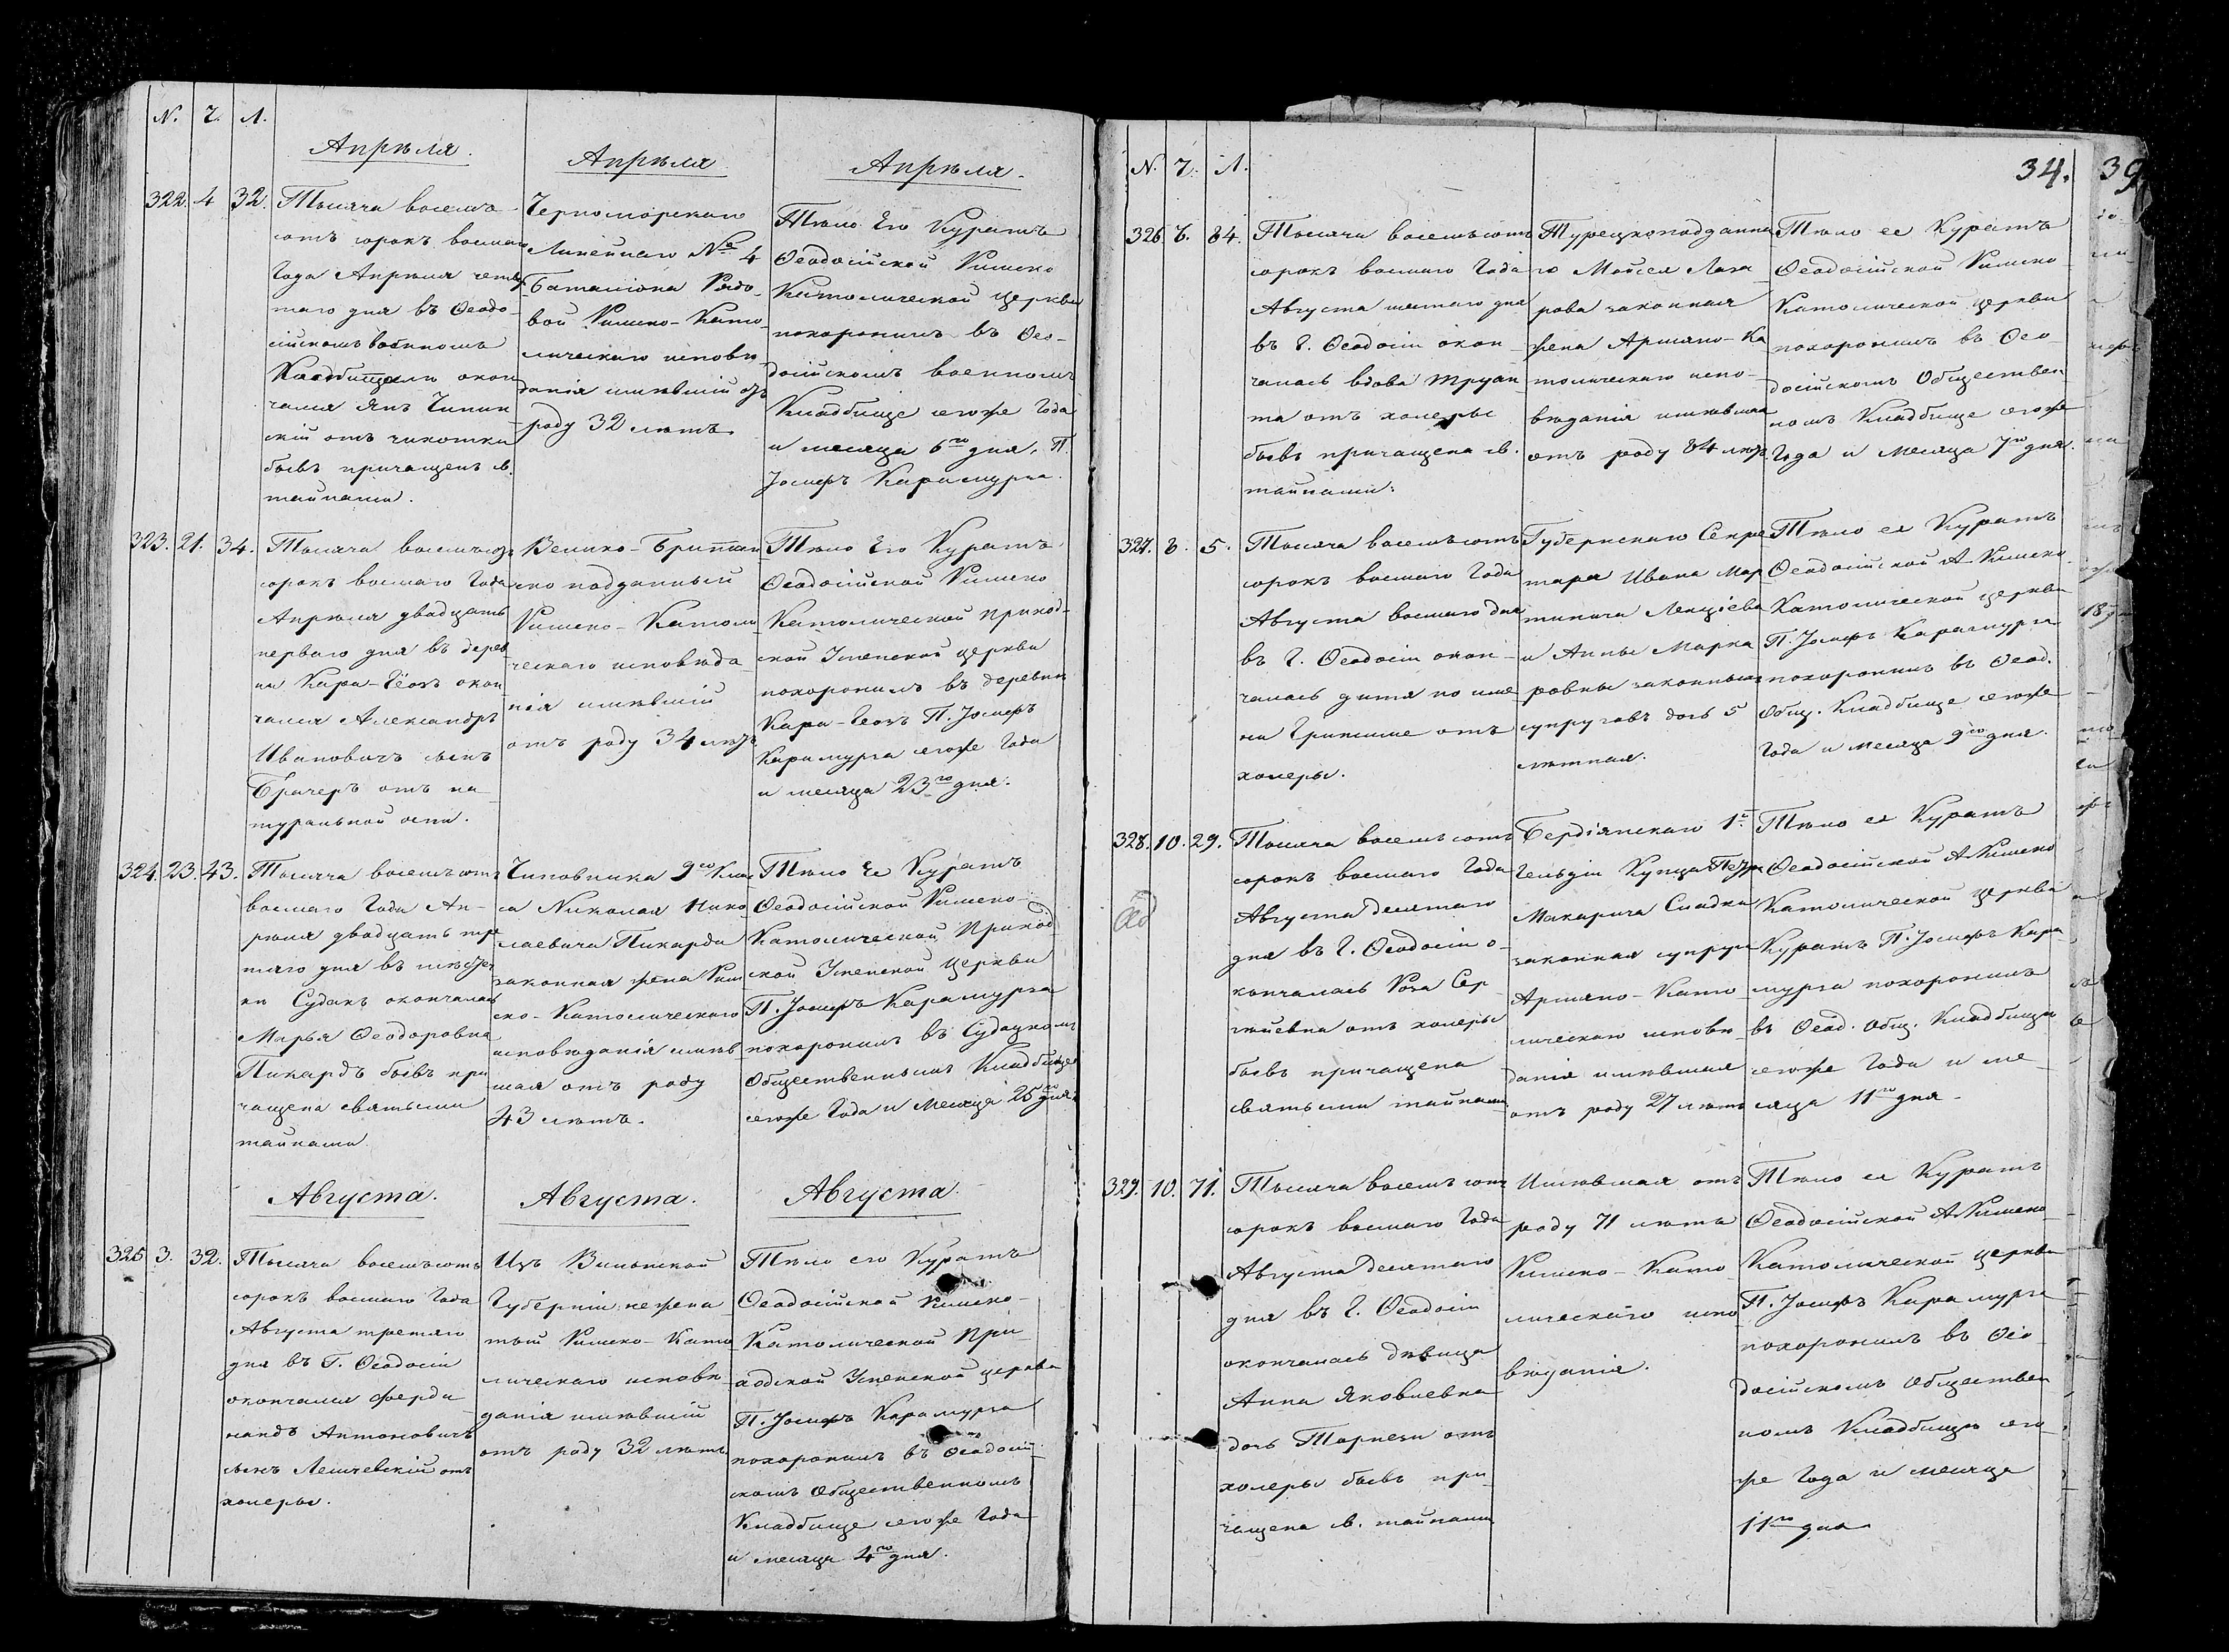 N. Ч. Л.
Апрѣля. Апрѣля Апрѣля.
322. 4 32.
Тысяча восемь-
сотъ сорокъ восмаго
Года Апрѣля четвер
таго дня въ Ѳеодо-
сійскомъ военномъ
Кладбищѣ окон
чался Янъ
скій отъ чахотки
бывъ причащенъ св.
тайнами.
Черноморскаго
Линейнаго № 4
Баталіона Рядо-
вой Римско-Като-
лическаго исповѣ
данія имѣвшій отъ
роду 32 лѣтъ
Тѣло Его Куратъ
Ѳеодосійской Римско
Католической церкви
похоронилъ въ Ѳео-
досійскомъ военномъ
Кладбище тогоже Года
и месяца 6го дня. П.
Іосифъ Карамурза.
323. 21. 34.
Тысяча восемьсотъ
сорокъ восмаго Года
Апрѣля двадцать
перваго дня въ дерев
ни Кара-Гёозъ окон
чался Александръ
Ивановичъ сынъ
Бричеръ отъ на-
туральной оспи.
Велико-Британ
ско подданный
Римско-Католи
ческаго исповѣда
нія имѣвшій
отъ роду 34 лѣтъ
Тѣло Его Куратъ
Ѳеодосійской Римско
Католической приход-
ской Успенской церкви
похоронилъ въ деревни
Кара-Геозъ П. Іосифъ
Карамурза тогоже Года
и месяца 23го дня.
324. 23. 43.
Тысяча восемьсотъ
восмаго Года Ап-
рѣля двадцать тре
тяго дня въ мѣстеч
ки Судакъ окончалась
Марья Ѳеодоровна
Пикардъ бывъ при
чащена святыми
тайнами
Чиновника 9го Клас
са Николая Нико
лаевича Пикарда
законная жена Рим
ско-Католическаго
исповѣданія имѣв
шая отъ роду
43 лѣтъ.
Тѣло Ее Куратъ
Ѳеодосійской Римско-
Католической Приход
ской Успенской Церкви
П. Іосифъ Карамурза
похоронилъ въ Судацкомъ
Общественномъ Кладбище
тогоже Года и Месяца 25го дня.
Августа. Августа. Августа.
325 3. 32.
Тысяча восемьсотъ
сорокъ восмаго Года
Августа третяго
дня въ Г. Ѳеодосіи
окончался Ферди
нандъ Антоновичъ
сынъ Лешчевскій отъ
холеры.
Изъ Виленской
Губерніи нежена
тый Римско-Като
лическаго исповѣ
данія имѣвшій
отъ роду 32 лѣтъ
Тѣло его Куратъ
Ѳеодосійской Римско-
Католической При-
ходской Успенской церкви
П. Іосифъ Карамурза
похоронилъ въ Ѳеодосій
скомъ Общественномъ
Кладбище тогоже Года
и месяца 4го дня.
N. Ч. Л. 34. 39
326. 6. 84.
Тысяча восемьсотъ
сорокъ восмаго Года
Августа шестаго дня
въ Г. Ѳеодосіи окон
чалась вдова
отъ холеры
бывъ причащена св.
тайнами.
Турецкоподданна
го Мойсея Лаза
рова законная
жена Армяно-Ка
толическаго испо-
вѣданія имѣвшая
отъ роду 84 лѣтъ
Тѣло ее Куратъ
Ѳеодосійской Римско
Католической церкви
похоронилъ въ Ѳео
досійскомъ Обществен
номъ Кладбище тогоже
Года и Месяца 7го дня.
327. 8. 5.
Тысяча восемьсотъ
сорокъ восмаго Года
Августа восмаго дня
въ Г. Ѳеодосіи окон-
чалась дитя по име
ни Грипсиме отъ
холеры.
Губернскаго Секре
таря Ивана Мар
тинича
и Анны Марка
ровны законныхъ
супруговъ дочь 5
лѣтная.
Тѣло ея Куратъ
Ѳеодосійской А-Римско
Католической церкви
П. Іосифъ Карамурза
похоронилъ въ Ѳеод.
Общ. Кладбище тогоже
Года и месяца 9го дня.
328. 10. 29.
Тысяча восемьсотъ
сорокъ восмаго Года
Августа десятаго
дня въ Г. Ѳеодосіи о-
кончалась Роза Сер-
гѣевна отъ холеры
бывъ причащена
святыми тайнами
Бердіянскаго 1й
Гельдіи Купца Петра
Макарича Сладки
законная супруга
Армяно-Като
лическаго исповѣ
данія имѣвшая
отъ роду 27 лѣтъ
Тѣло ея Куратъ
Ѳеодосійской А-Римско
Католической Церкви
Куратъ П. Іосифъ Кара-
мурза похоронилъ
въ Ѳеод. Общ. Кладбищѣ
тогоже Года и ме-
сяца 11го дня.
329. 10. 71.
Тысяча восемьсотъ
сорокъ восмаго Года
Августа Десятаго
дня въ Г. Ѳеодосіи
окончалась дѣвица
Анна Яковлевна
дочь отъ
холеры бывъ при
чащена св. тайнами
Имѣвшая отъ
роду 71 лѣта
Римско-Като
лическаго испо
вѣданія.
Тѣло ея Куратъ
Ѳеодосійской А-Римско
Католической Церкви
П. Іосифъ Карамурза
похоронилъ въ Ѳео
досійскомъ Обществен
номъ Кладбищѣ того
же Года и месяца
11го дня